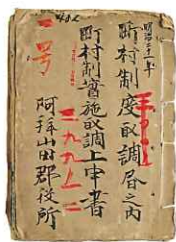 明治二十一年
町村制度取調書之内
町村制實施取調上申書
阿拜山田郡役所
一号
三九九ノ二